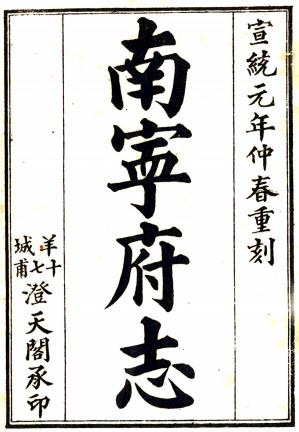 宣統元年仲春重刻
南寧府志
羊城十七甫澄天閣承印